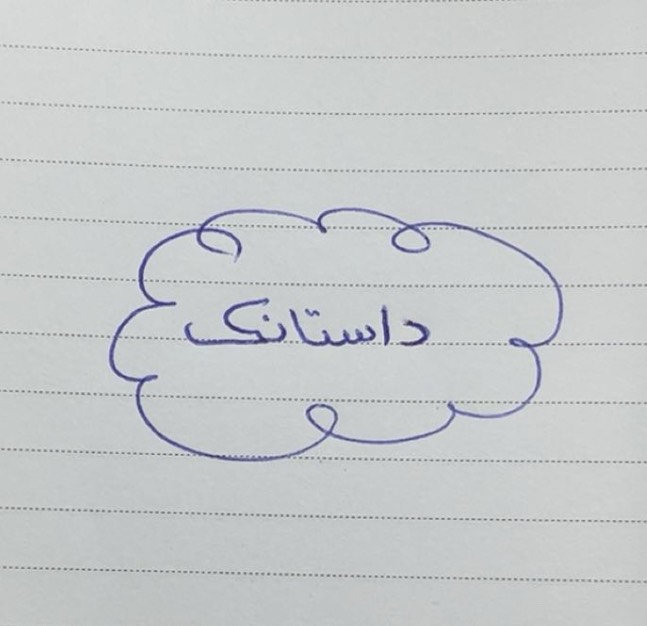 داستانک